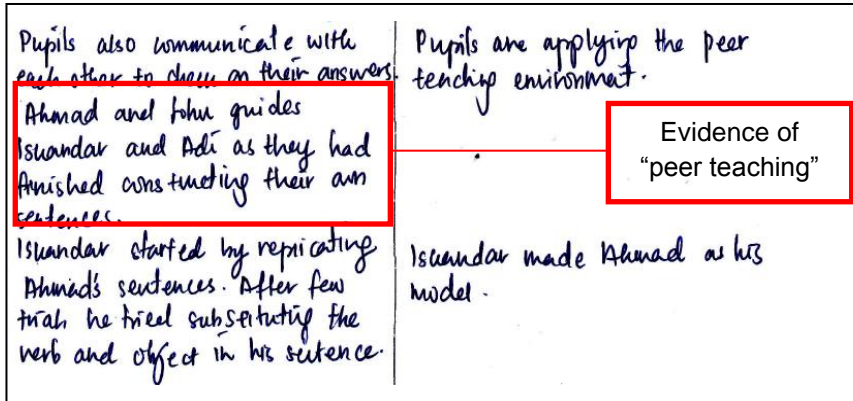 Pupils also communicate with
each other to chem on their answers.
Ahmad and John guides
Iskandar and Adi as they had
finished constructing their own
sentences.
Iskandar started by replicating
Ahmad's sentences. After few
trials he tried substituting the
verb and object in his sentence.
Pupils are applying the peer
teaching environment.
Evidence of
“peer teaching”
Iskandar made Ahmad as his
model.